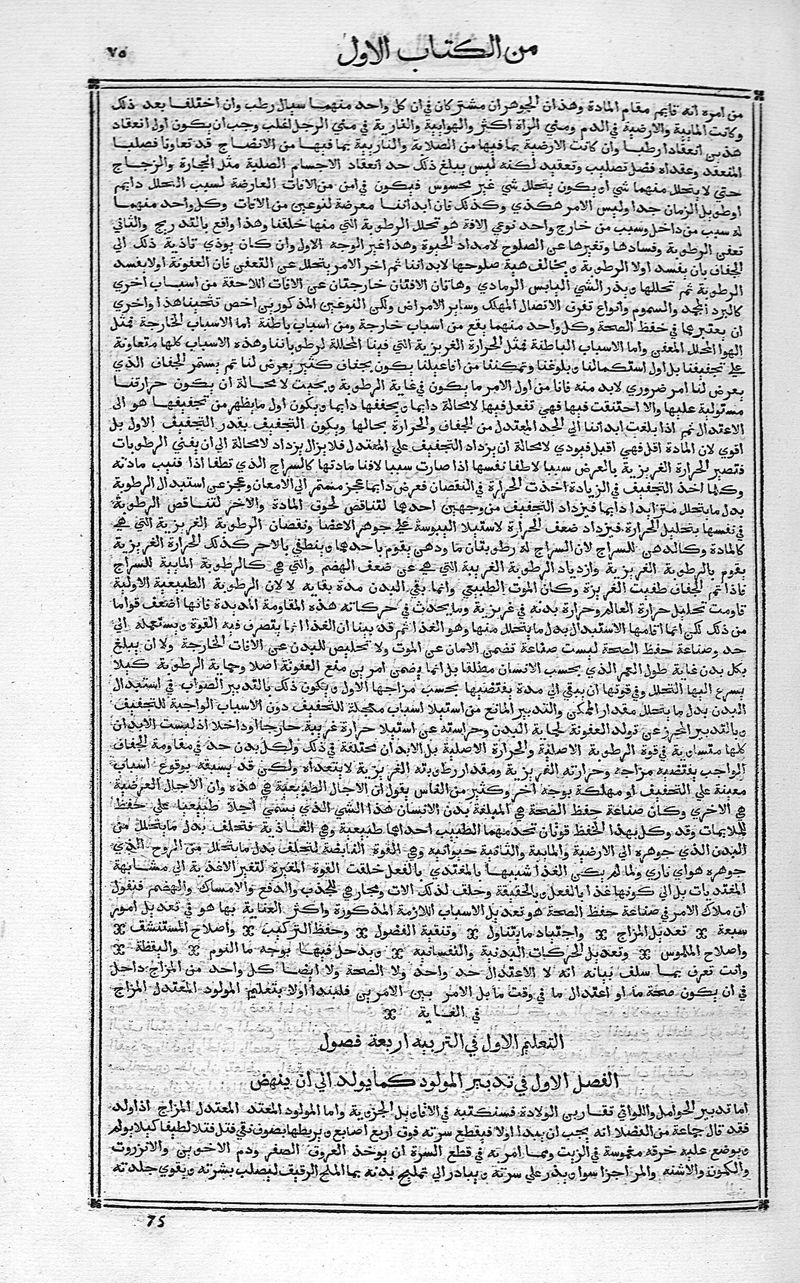 من الكتاب الاول
٧٥
من امره انه قايم مقام المادة وهذان الجوهران مشتركان في ان كل واحد منهما سيال رطب وان اختلفا بعد ذلك
وكانت المايية والارضية في الدم ومني المراة اكثر والهوايية والنارية في مني الرجل اغلب وجب ان يكون اول انعقاد
هذين انعقادا رطبا وان كانت الارضية بما فيها من الصلابة والنارية بما فيها من الانضاج قد تعاونا فصلبا
المنعقد وعقداه فضل تصليب وتعقيد لكنه ليس يبلغ ذلك حد انعقاد الاجسام الصلبة مثل الحجارة والزجاج
حتي لا يتحلل منهما شي او يكون يتحلل شي غير محسوس فيكون في امن من الافات العارضة لسبب التحلل دايم
او طويل الزمان جدا وليس الامر هكذي وكذلك فان ابداننا معرضة لنوعين من الافات وكل واحد منهما
له سبب من داخل وسبب من خارج واحد نوعي الافة هو تحلل الرطوبة التي منها خلقنا وهذا واقع بالتدريج والثاني
تعفن الرطوبة وفسادها وتغيرها عن الصلوح لامداد الحيوة وهذا غير الوجه الاول وان كان يودي تاذية ذلك الي
الجفاف بان يفسد اولا الرطوبة ويخالف هية صلوحها لابداننا ثم اخر الامر يتحلل عن التعفن فان العفونة اولا يفسد
الرطوبة ثم تحللها ويذر الشي اليابس الرمادي وهاتان الافتان خارجتان عن الافات اللاحقة من اسباب اخري
كالبرد المجمد والسموم وانواع تفرق الاتصال المهلك وساير الامراض ولكن النوعين المذكورين اخص تخصيصا هذا واحري
ان يعتبرهما في حفظ الصحة وكل واحد منهما يقع من اسباب خارجة ومن اسباب باطنة اما الاسباب الخارجة فمثل
الهوا المحلل المعفن واما الاسباب الباطنة فمثل الحرارة الغريزية التي فينا المحللة لرطوباتنا وهذه الاسباب كلها متعاونة
علي تجفيفنا بل اول استكمالنا وبلوغنا وتمكننا من افاعيلنا يكون بجفاف كثير يعرض لنا ثم يستمر الجفاف الذي
يعرض لنا امر ضروري لابد منه فانا من اول الامر ما يكون في غاية الرطوبة ويجب لا محالة ان يكون حرارتنا
مستولية عليها والا احتقنت فيها فهي تفعل فيها لامحالة دايما ويجففها دايما ويكون اول ما يظهر من تجفيفها هو الي
الاعتدال ثم اذا بلغت ابداننا الي الحد المعتدل من الجفاف والحرارة بحالها ويكون التجفيف بقدر التجفيف الاول بل
اقوي لان المادة اقل فهي اقبل فيودي لامحالة ان يزداد التجفيف علي المعتدل فلا يزال يزداد لامحالة الي ان يفني الرطوبات
فتصير الحرارة الغريزية بالعرض سببا لاطفا نفسها اذا صارت سببا لافنا مادتها كالسراج الذي تطفا اذا فنيت مادته
وكلما اخذ التجفيف في الزيادة اخذت الحرارة في النقصان فعرض دايما عجز مستمر الي الامعان وعجز عن استبدال الرطوبة
بدل ما يتحلل متزايدا دايما فيزداد التجفيف من وجهين احدهما لتناقص لحوق المادة والاخر لتناقص الرطوبة
في نفسها بتحليل الحرارة فيزداد ضعف الحرارة لاستيلا اليبوسة علي جوهر الاعضا ونقصان الرطوبة الغريزية التي هي
كالمادة وكالدهن للسراج لان السراج له رطوبتان ما ودهن يقوم باحدهما وينطفي بالاخر كذلك الحرارة الغريزية
يقوم بالرطوبة الغريزية وازدياد الرطوبة الغريبة التي هي عن ضعف الهضم والتي هي كالرطوبة المايية للسراج
فاذا تم الجفاف طفيت الغريزة وكان الموت الطبيعي وانما بقي البدن مدة بقايه لا لان الرطوبة الطبيعية الاولية
قاومت تحليل حرارة العالم وحرارة بدنه في غريزية وما يحدث في حركاته هذه المقاومة المديدة فانها اضعف قواما
من ذلك لكن انما اقامها الاستبدال بدل ما يتحلل منها وهو الغذا ثم قد بينا ان الغذا انما يتصرف فيه القوة ويستعمله الي
حد وصناعة حفظ الصحة ليست صناعة تضمن الامان عن الموت ولا تخليص للبدن عن الافات الخارجة ولا ان يبلغ
بكل بدن غاية طول العمر الذي يحسب الانسان مطلقا بل انما يضمن امرين منع العفونة اصلا وحماية الرطوبة كيلا
يسرع اليها التحلل وفي قوتها ان يبقي الي مدة يقتضيها بحسب مزاجها الاول ويكون ذلك بالتدبير الصواب في استبدال
البدن بدل ما يتحلل مقدار الممكن والتدبير المانع من استيلا اسباب معجلة للتجفيف دون الاسباب الواجبة للتجفيف
وبالتدبير المحرز عن تولد العفونة لحماية البدن وحراسته عن استيلا حرارة غريبة خارجا او داخلا اذ ليست الابدان
كلها متساوية في قوة الرطوبة الاصلية والحرارة الاصلية بل الابدان مختلفة في ذلك ولكل بدن حد في مقاومة الجفاف
الواجب يقتضيه مزاجه وحرارته الغريزية ومقدار رطوبته الغريزية لا يتعداه ولكن قد يسبقه بوقوع اسباب
معينة علي التجفيف او مهلكة بوجه اخر وكثير من الناس يقول ان الاجال الطبيعية هي هذه وان الاجال العرضية
هي الاخري وكان صناعة حفظ الصحة هي المبلغة بدن الانسان هذا الشي الذي يسمي اجلا طبيعيا علي حفظ
للملايمات وقد وكل بهذا الحفظ قوتان تخدمهما الطبيب احداها طبيعية وهي الغاذية فتخلف بدل ما يتحلل من
البدن الذي جوهره الي الارضية والمايية والثانية حيوانية وهي القوة النابضة لتخلف بدل ما يتحلل من الروح الذي
جوهره هواي ناري ولما لم يكن الغذا شبيها بالمغتذي بالفعل خلقت القوة المغيرة لتغير الاغذية الي مشابهة
المغتذيات بل الي كونها غذا بالفعل وبالحقيقة وخلف لذلك الات ومجاري هي للجذب والدفع والامساك والهضم فيقول
ان ملاك الامر في صناعة حفظ الصحة هو تعديل الاسباب اللازمة المذكورة واكثر العناية بها هو في تعديل امور
سبعة ※ تعديل المزاج ※ واختيار ما يتناول ※ وتنقية الفضول ※ وحفظ التركيب ※ واصلاح المستنشق ※
واصلاح الملبوس ※ وتعديل الحركات البدنية والنفسانية ※ ويدخل فيها بوجه ما النوم ※ واليقظة ※
وانت تعرف بما سلف بيانه انه لا الاعتدال حد واحد ولا الصحة ولا ايضا كل واحد من المزاج داخل
في ان يكون صحة ما او اعتدال ما في وقت ما بل الامر بين الامرين فلنبدا اولا بتعليم المولود المعتدل المزاج
في الغاية ※
التعليم الاول في التربيه اربعة فصول
الفصل الاول في تدبير المولود كما يولد الي ان ينهض
اما تدبير الحوامل واللواتي تقاربن الولادة فسنكتبه في الاقاويل الجزوية واما المولود المعتد المعتدل المزاج اذا ولد
فقد قال جماعة من الفضلا انه يجب ان يبدا اولا فيقطع سرته فوق اربع اصابع ويربطها بصوف نقي فتل فتلا لطيفا كيلا يولم
ويوضع عليه خرقه مغموسة في الزيت ومما امر به في قطع السرة ان يوخذ العروق الصفر ودم الاخوين والانزروت
والكمون والاشنه والمر اجزا سوا ويذر علي سرته ويبادر الي تمليح بدنه بما الملح الرقيق ليصلب بشرته ويقوي جلدته
75